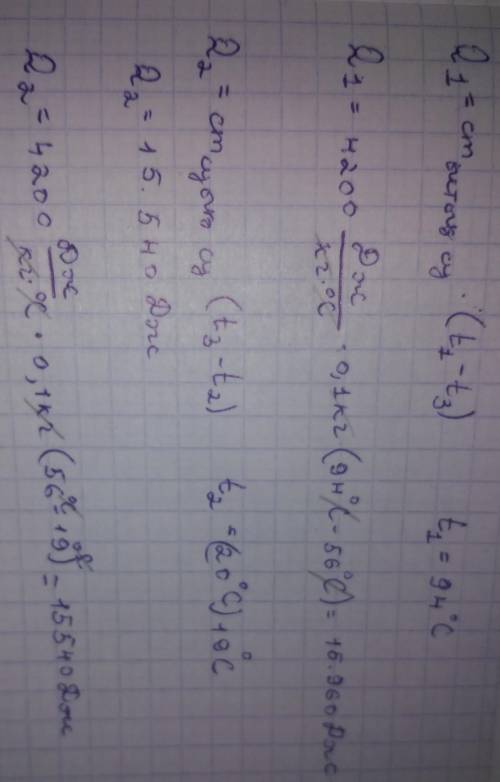 Q₁ = cm (t₁ - t₃) t₁ = 94°C
Q₁ = 4200 Дж/кг·°C · 0,1кг (94°C - 56°C) = 15.960Дж
Q₂ = cm (t₃ - t₂) t₂ = (20°C) 19°C
Q₂ = 15.540 Дж
Q₂ = 4200 Дж/кг·°C · 0,1кг (56°C - 19°C) = 15540Дж